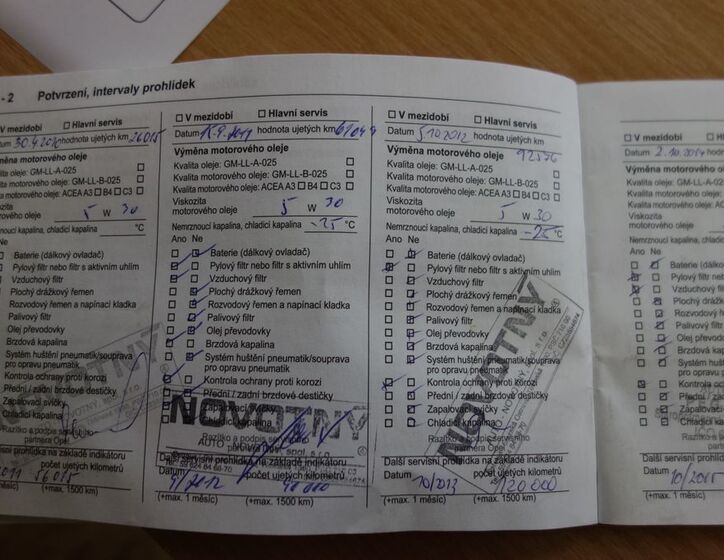 - 2 Potvrzení, intervaly prohlídek
V mezidobí Hlavní servis
Datum 30.4.2010 hodnota ujetých km 26015
Výměna motorového oleje
Kvalita oleje: GM-LL-A-025
Kvalita oleje: GM-LL-B-025
Kvalita motorového oleje: ACEA A3 B4 C3
Viskozita
motorového oleje 5 W 30
Nemrznoucí kapalina, chladicí kapalina °C
Ano Ne
Baterie (dálkový ovladač)
Pylový filtr nebo filtr s aktivním uhlím
Vzduchový filtr
Plochý drážkový řemen
Rozvodový řemen a napínací kladka
Palivový filtr
Olej převodovky
Brzdová kapalina
Systém huštění pneumatik/souprava
pro opravu pneumatik
Kontrola ochrany proti korozi
Přední / zadní brzdové destičky
Zapalovací svíčky
Chladicí kapalina
Razítko a podpis servisního
partnera Opel
NOVOTNÝ
Další servisní prohlídka na základě indikátoru
Datum počet ujetých kilometrů
56015
(+max. 1 měsíc) (+max. 1500 km)
V mezidobí Hlavní servis
Datum hodnota ujetých km
Výměna motorového oleje
Kvalita oleje: GM-LL-A-025
Kvalita oleje: GM-LL-B-025
Kvalita motorového oleje: ACEA A3 B4 C3
Viskozita
motorového oleje 5 W 30
Nemrznoucí kapalina, chladicí kapalina -25 °C
Ano Ne
Baterie (dálkový ovladač)
Pylový filtr nebo filtr s aktivním uhlím
Vzduchový filtr
Plochý drážkový řemen
Rozvodový řemen a napínací kladka
Palivový filtr
Olej převodovky
Brzdová kapalina
Systém huštění pneumatik/souprava
pro opravu pneumatik
Kontrola ochrany proti korozi
Přední / zadní brzdové destičky
Zapalovací svíčky
Chladicí kapalina
NOVOTNÝ
Razítko a podpis servisního
AUTO
spol. s r.o.
Další servisní prohlídka na základě indikátoru
Datum počet ujetých kilometrů
9/2012
(+max. 1 měsíc) (+max. 1500 km)
V mezidobí Hlavní servis
Datum 5.10.2012 hodnota ujetých km
Výměna motorového oleje 92576
Kvalita oleje: GM-LL-A-025
Kvalita oleje: GM-LL-B-025
Kvalita motorového oleje: ACEA A3 B4 C3
Viskozita
motorového oleje 5 W 30
Nemrznoucí kapalina, chladicí kapalina -25 °C
Ano Ne
Baterie (dálkový ovladač)
Pylový filtr nebo filtr s aktivním uhlím
Vzduchový filtr
Plochý drážkový řemen
Rozvodový řemen a napínací kladka
Palivový filtr
Olej převodovky
Brzdová kapalina
Systém huštění pneumatik/souprava
pro opravu pneumatik
Kontrola ochrany proti korozi
Přední / zadní brzdové destičky
Zapalovací svíčky
Chladicí kapalina
NOVOTNÝ
Razítko a podpis servisního
partnera Opel
Další servisní prohlídka na základě indikátoru
Datum počet ujetých kilometrů
10/2013 120 000
(+max. 1 měsíc) (+max. 1500 km)
V mezidobí
Datum 2.10.2014 hodnota
Výměna motorového
Kvalita oleje: GM-LL-A-025
Kvalita oleje: GM-LL-B-0
Kvalita motorového oleje
Viskozita
motorového oleje
Nemrznoucí kapalina, chl
Ano Ne
Baterie (dálk
Pylový filtr n
Vzduchový
Plochý dráž
Rozvodový
Palivový
Olej převo
Brzdová
Systém h
pro oprav
Kontrola
Přední /
Zapalov
Chladic
Razít
Další servisní prohlíd
Datum
10/2015
(+max. 1 měsíc)